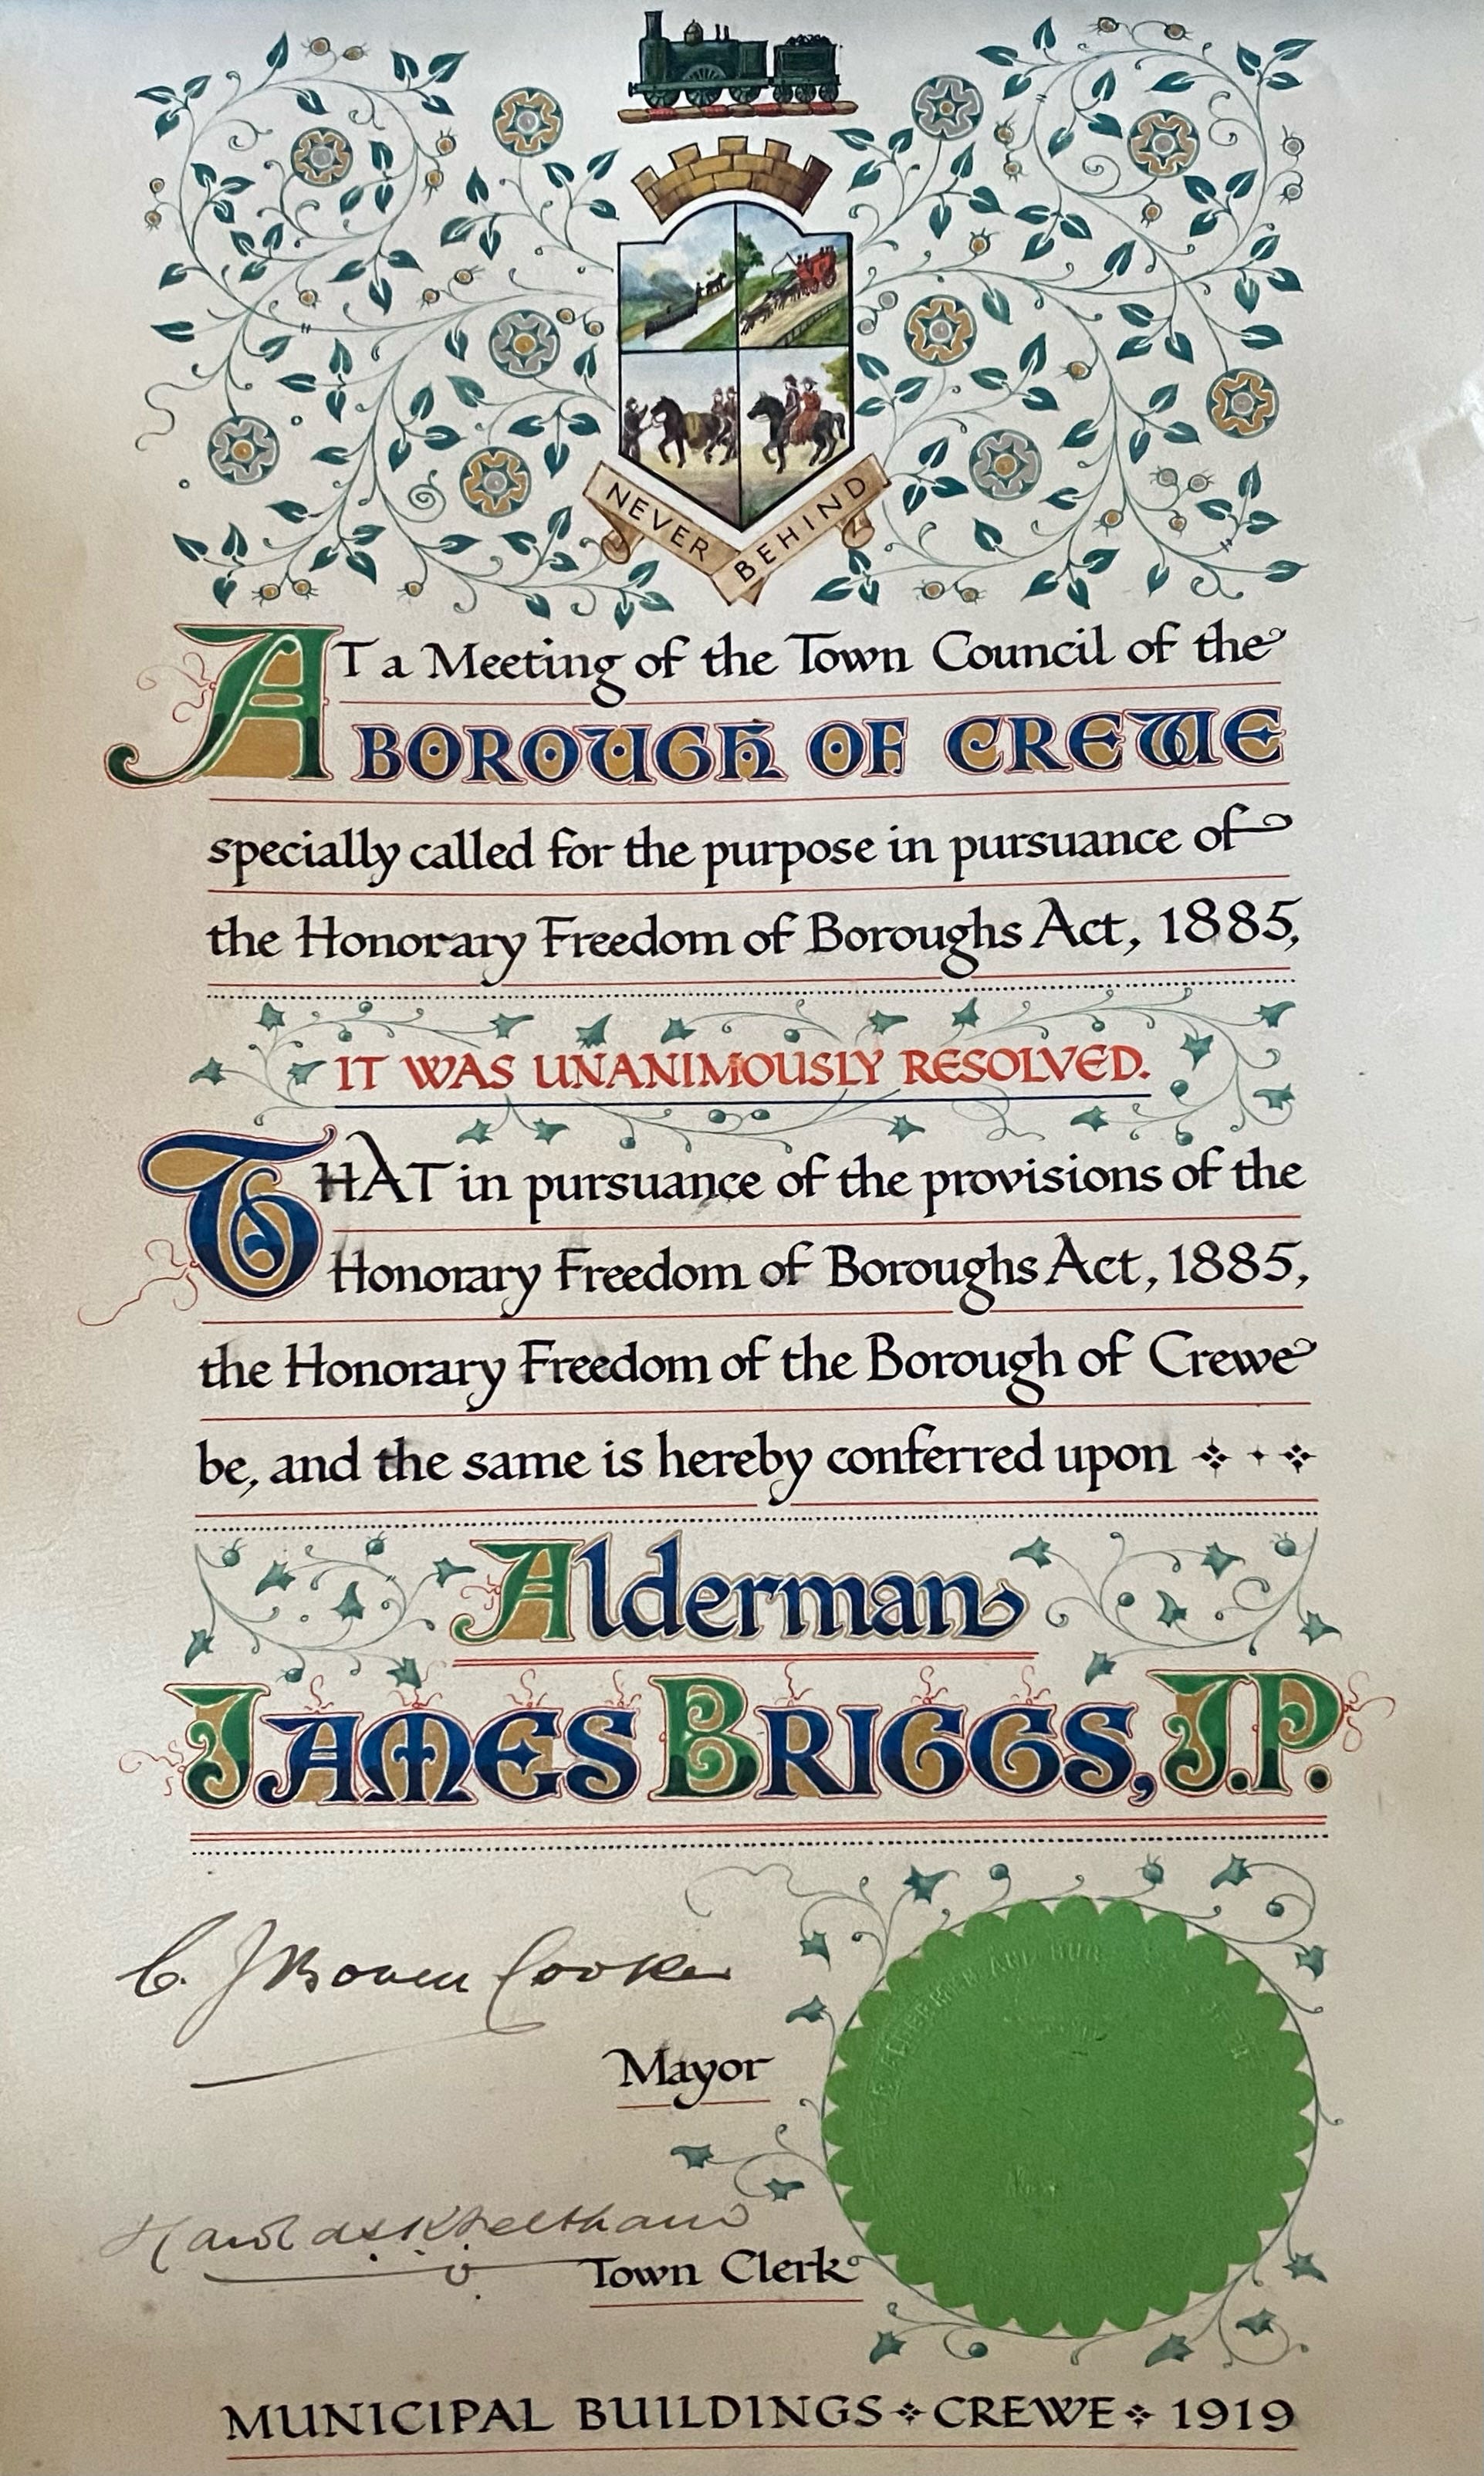 NEVER BEHIND
AT a Meeting of the Town Council of the
BOROUGH OF CREWE
specially called for the purpose in pursuance of
the Honorary Freedom of Boroughs Act, 1885,
IT WAS UNANIMOUSLY RESOLVED.
THAT in pursuance of the provisions of the
Honorary Freedom of Boroughs Act, 1885,
the Honorary Freedom of the Borough of Crewe
be, and the same is hereby conferred upon
Alderman
JAMES BRIGGS, J.P.
C. J Bowen Cooke
Mayor
Town Clerk
MUNICIPAL BUILDINGS CREWE 1919